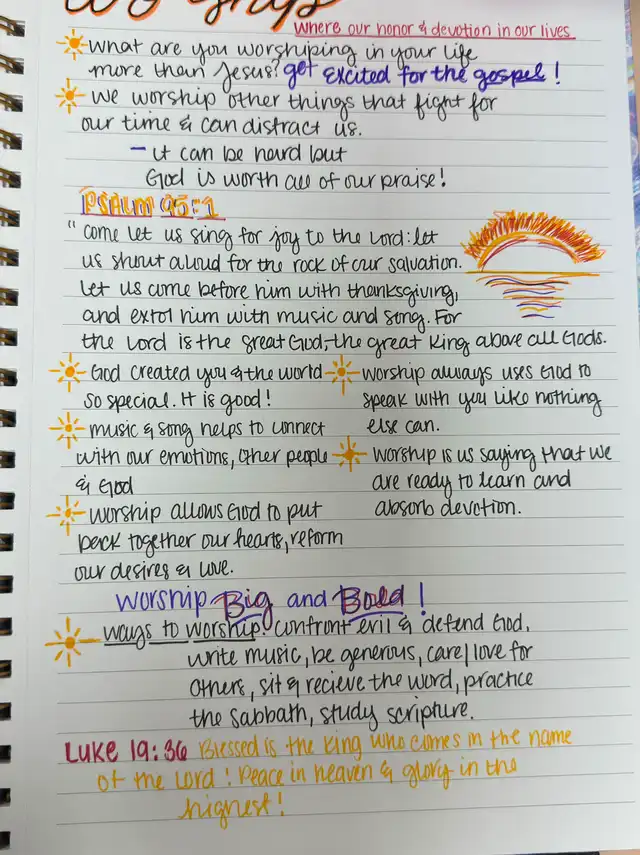 Worship
where our honor & devotion in our lives
what are you worshiping in your life
more than Jesus? get excited for the gospel!
we worship other things that fight for
our time & can distract us.
- it can be hard but
God is worth all of our praise!
PSALM 95:1
"come let us sing for joy to the Lord: let
us shout aloud for the rock of our salvation.
Let us come before him with thanksgiving,
and extol him with music and song. For
the Lord is the great God, the great King above all Gods.
God created you & the world
so special. It is good!
music & song helps to connect
with our emotions, other people
& God
worship allows God to put
back together our hearts, reform
our desires & love.
worship always uses God to
speak with you like nothing
else can.
worship is us saying that we
are ready to learn and
absorb devotion.
worship Big and Bold!
ways to worship: confront evil & defend God,
write music, be generous, care/love for
others, sit & recieve the word, practice
the Sabbath, study scripture.
Luke 19:36 Blessed is the king who comes in the name
of the Lord! Peace in heaven & glory in the
highest!